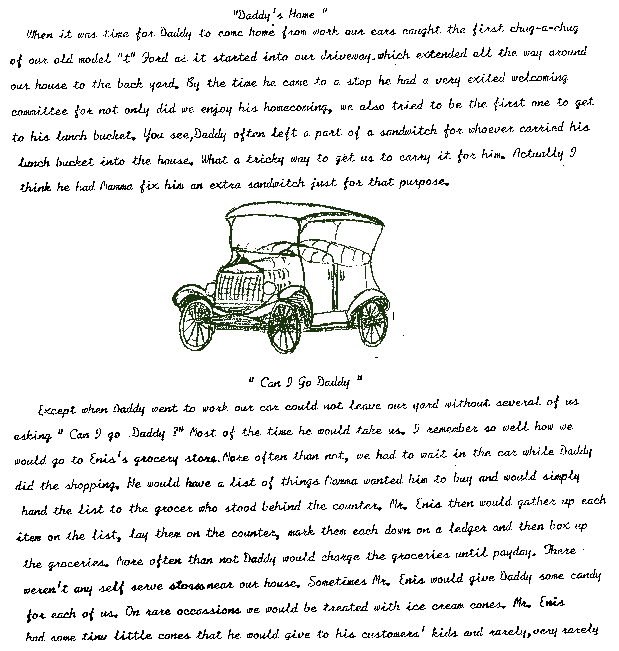 "Daddy's Home "
When it was time for Daddy to come home from work our ears caught the first chug-a-chug
of our old model "t" Ford as it started into our driveway.which extended all the way around
our house to the back yard. By the time he came to a stop he had a very exited welcoming
committee for not only did we enjoy his homecoming, we also tried to be the first one to get
to his lunch bucket. You see,Daddy often left a part of a sandwitch for whoever carried his
lunch bucket into the house. What a tricky way to get us to carry it for him. Actually I
think he had Mamma fix him an extra sandwitch just for that purpose.
" Can I Go Daddy "
Except when Daddy went to work our car could not leave our yard without several of us
asking " Can I go Daddy ?" Most of the time he would take us. I remember so well how we
would go to Enis's grocery store.More often than not, we had to wait in the car while Daddy
did the shopping. He would have a list of things Mamma wanted him to buy and would simply
hand the list to the grocer who stood behind the counter. Mr. Enis then would gather up each
item on the list, lay them on the counter, mark them each down on a ledger and then box up
the groceries. More often than not Daddy would charge the groceries until payday. There
weren't any self serve stores near our house. Sometimes Mr. Enis would give Daddy some candy
for each of us. On rare occassions we would be treated with ice cream cones. Mr. Enis
had some tiny little cones that he would give to his customers' kids and rarely,very rarely